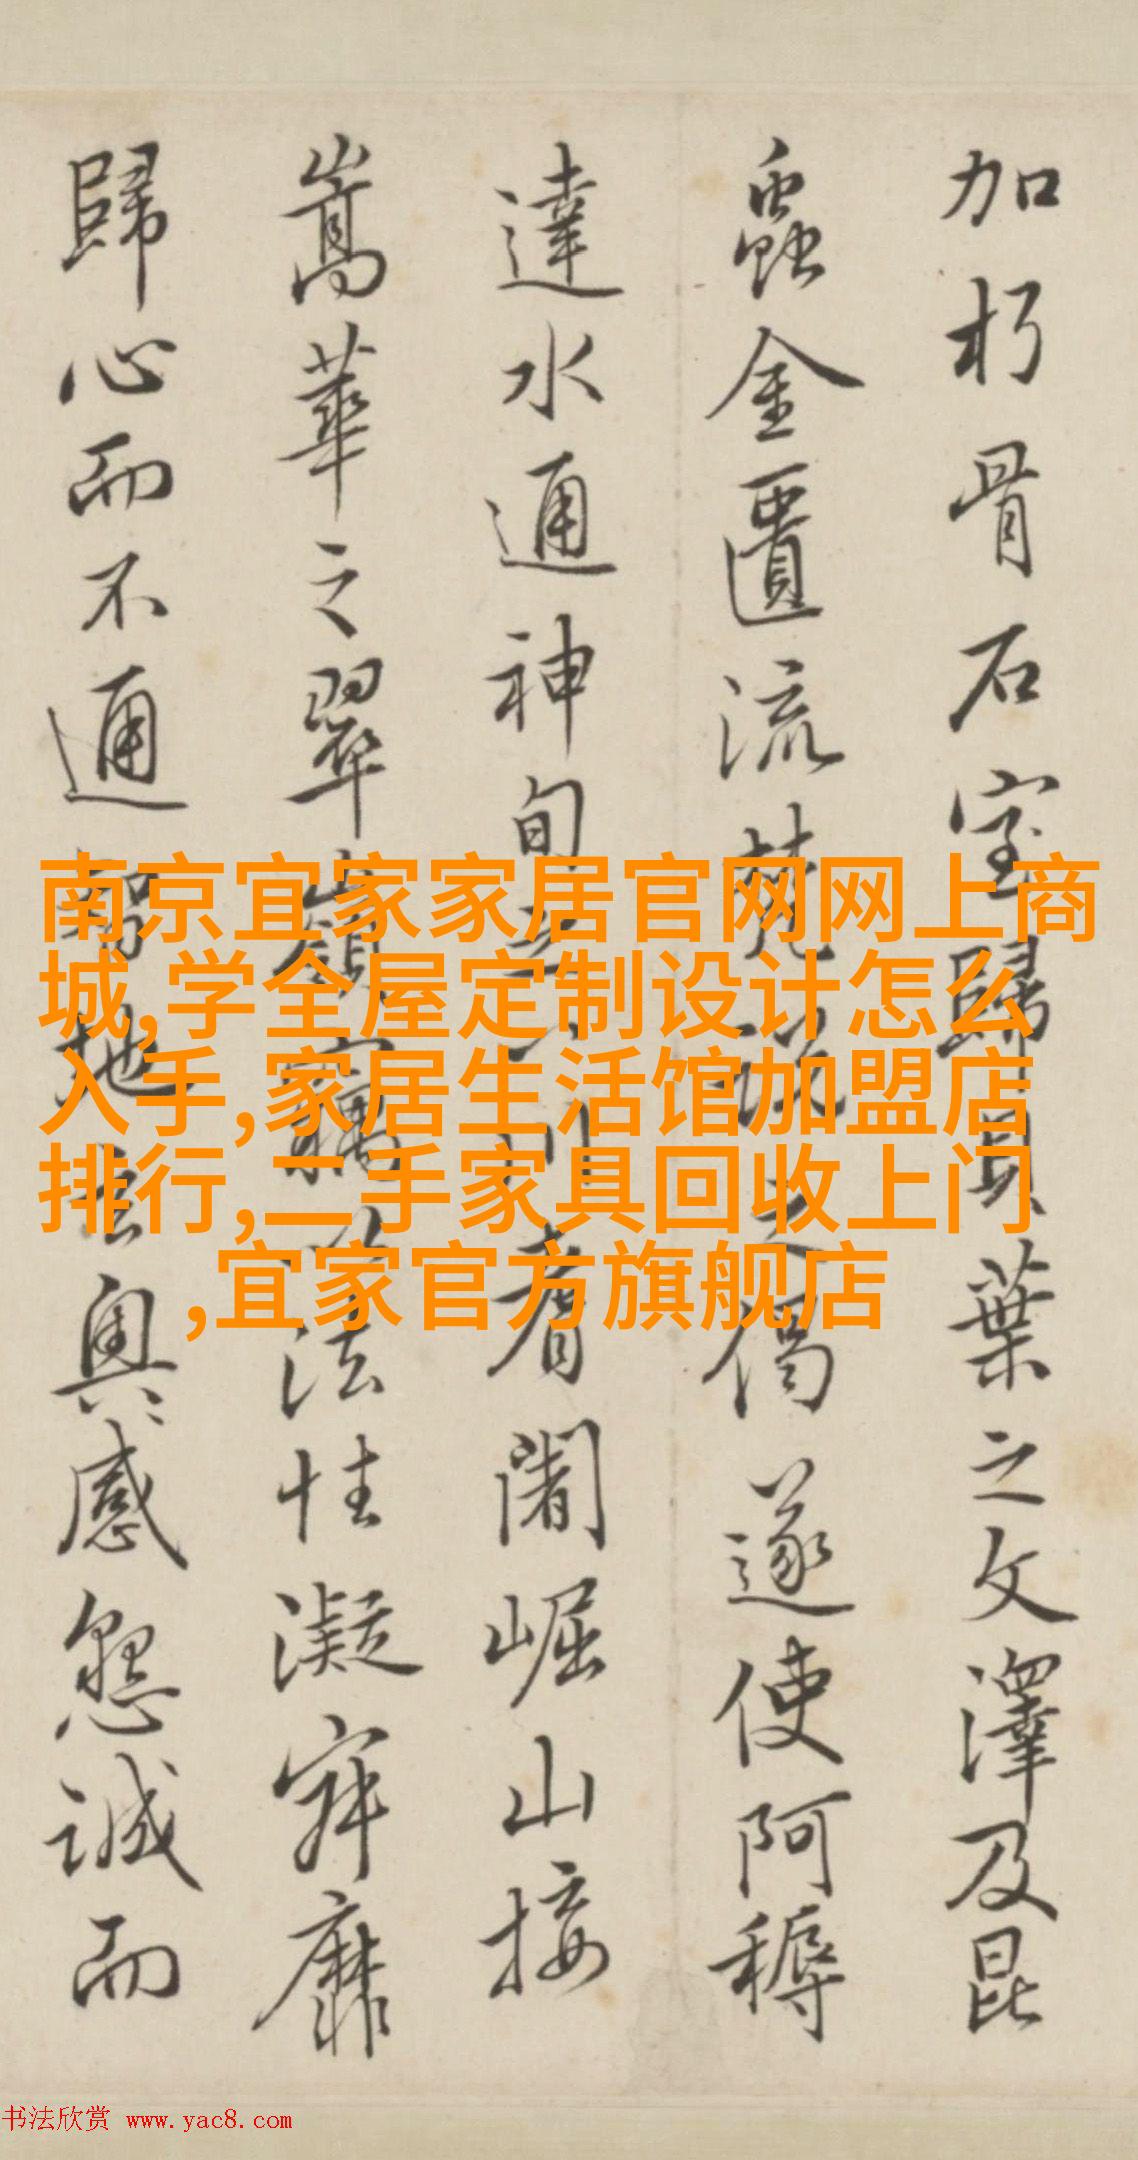 加朽骨石室歸貝葉之文澤及昆
蟲金匱流梵説之偈遂使阿耨
達水通神甸之八川耆闍崛山接
嵩華之翠嶺竊以法性凝寂靡
歸心而不通智地玄奥感懇誠而
南京宜家家居官网网上商
城,学全屋定制设计怎么
入手,家居生活馆加盟店
排行,二手家具回收上门
,宜家官方旗舰店
书法欣赏 www.yac8.com